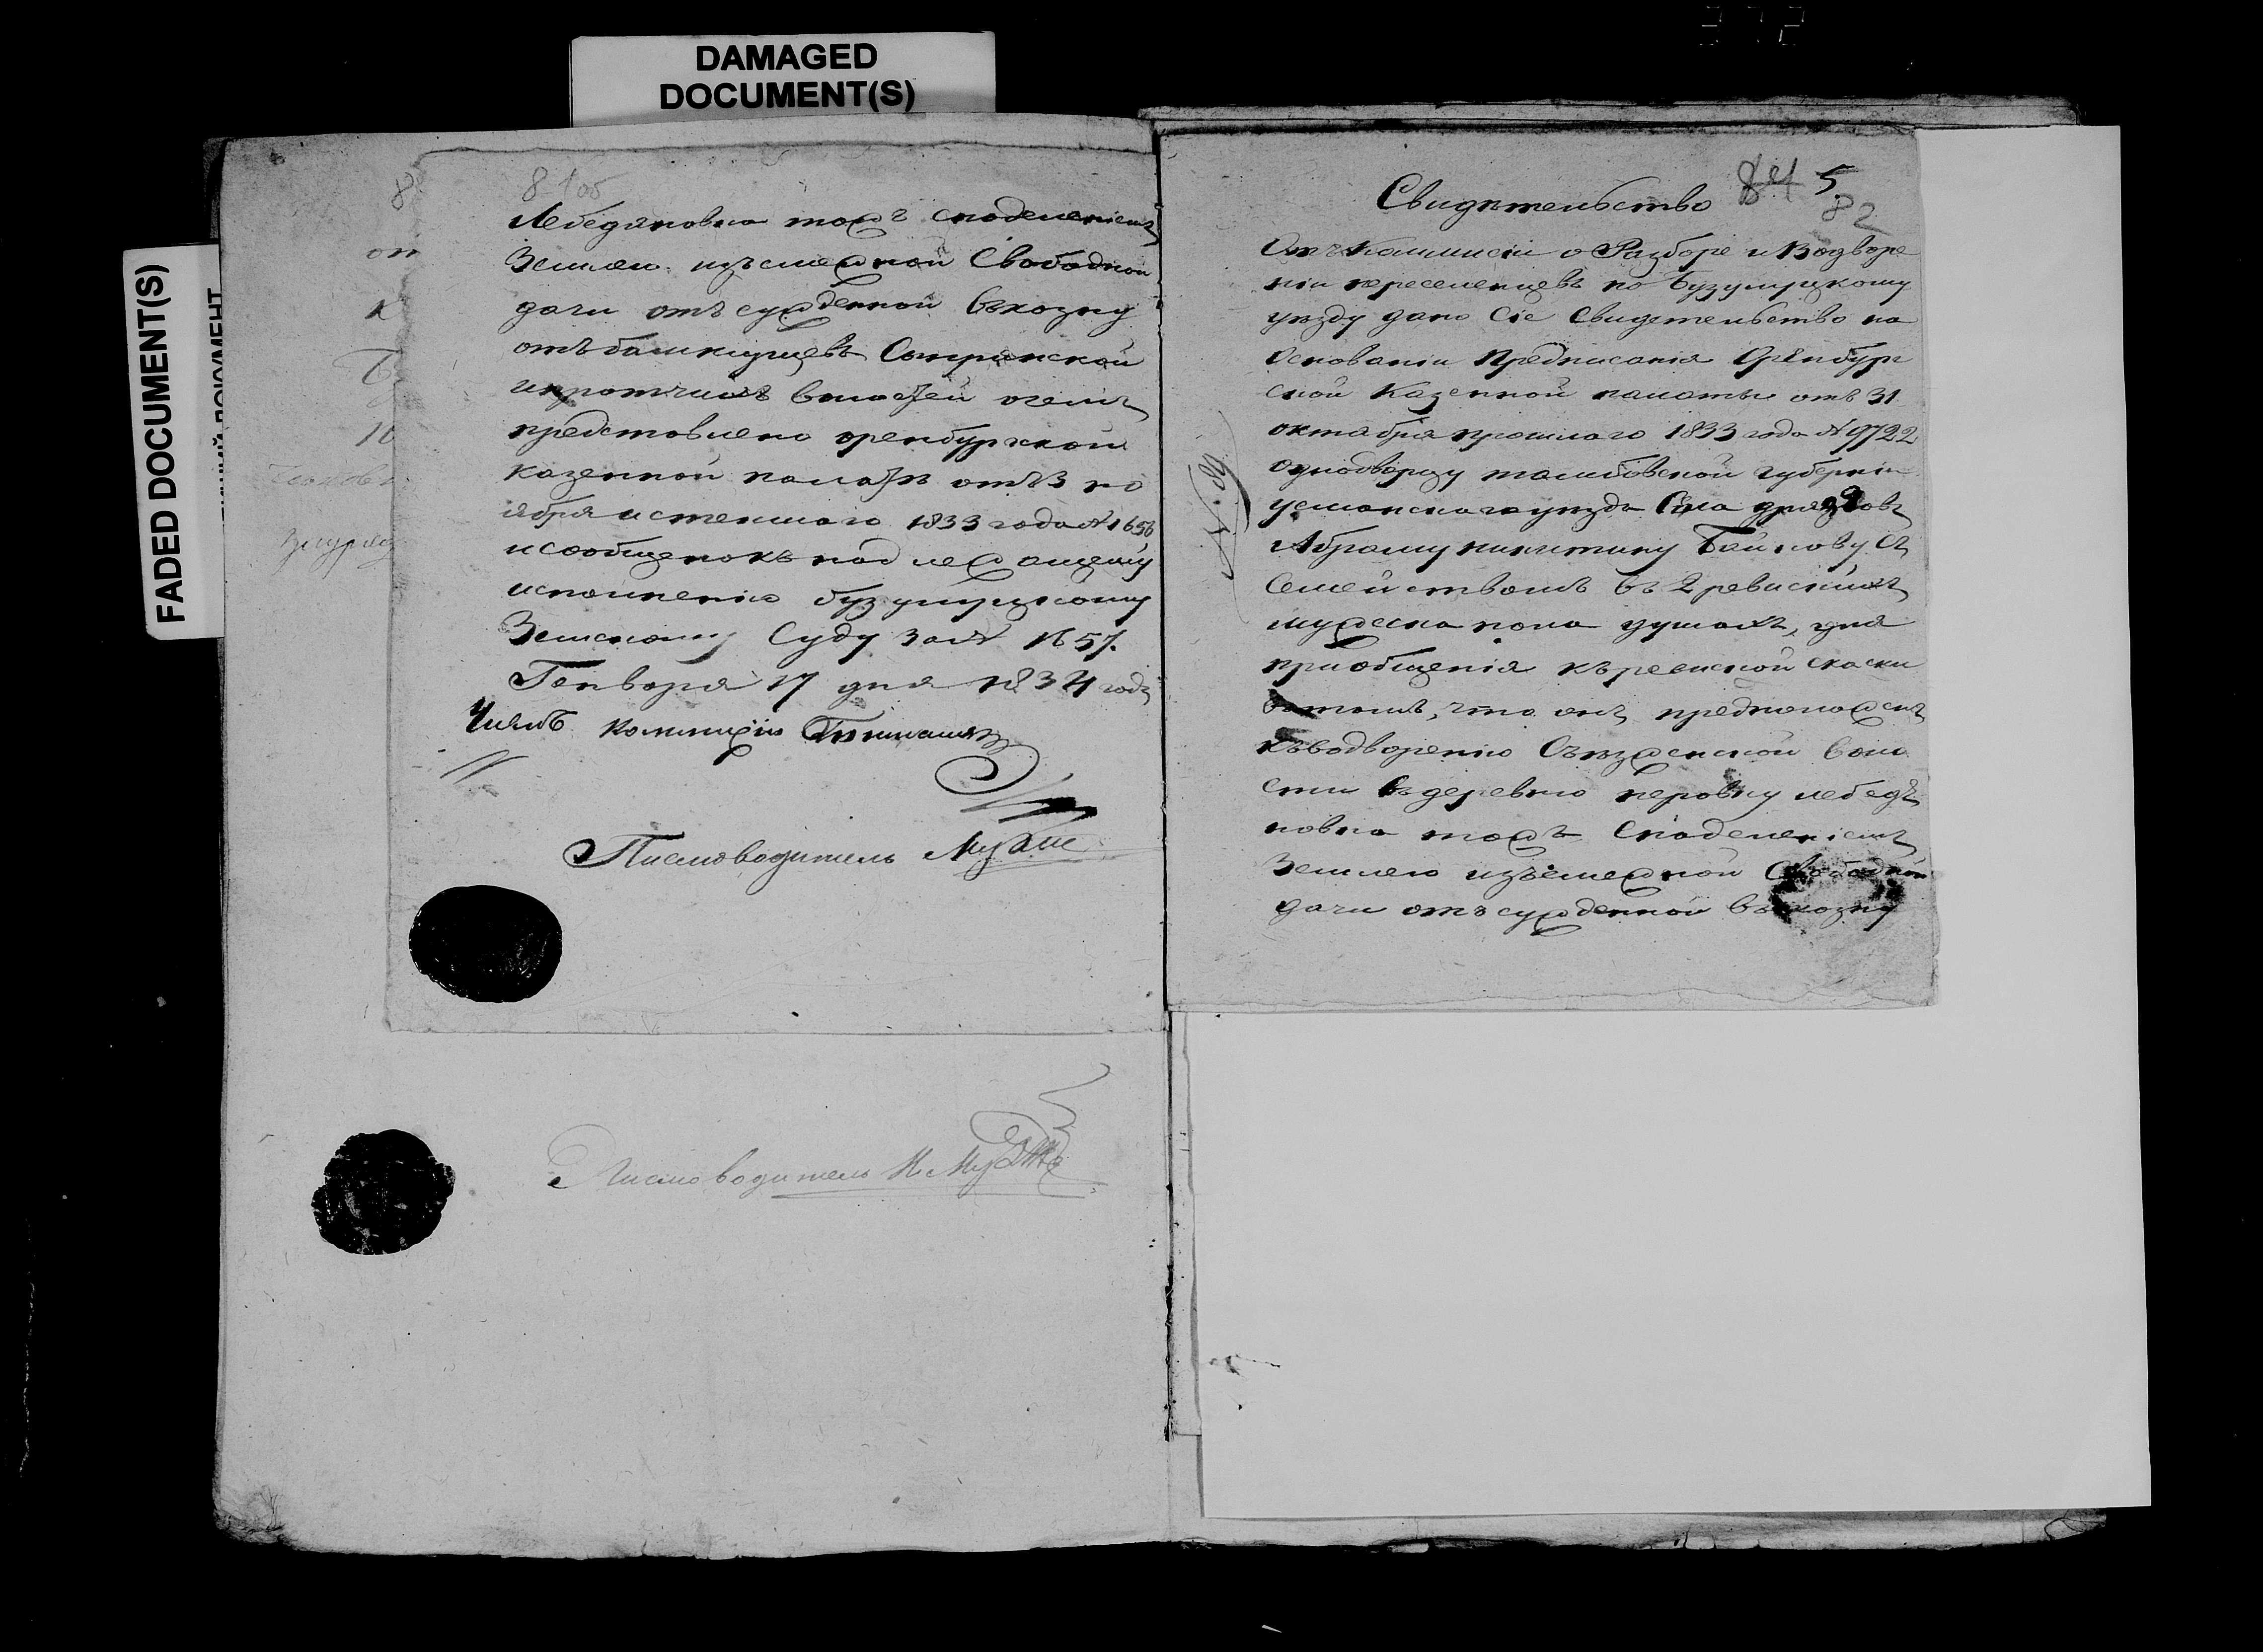 DAMAGED
DOCUMENT(S)
FADED DOCUMENT(S)
81об
Лебедяновка тожъ снаделениемъ
Землею изъ смежной Свободной
дачи отъ сужденной въказну
отъ башкирцевъ
ипротчихъ волостей очемъ
представлено оренбургской
казенной палатѣ отъ 3 но
ября истекшаго 1833 года № 1656
исообщенокъ надлежащему
исполнению бузулуцкому
Земскому Суду за № 1657.
Генваря 17 дня 1834 года
Членъ комиисіи
Писмоводитель
Писмоводитель
Свидѣтельство
84 5
82
Отъ Коммисіи о Разборе и Водворе
ніи переселенцевъ по Бузулуцкому
уезду дано Сіе Свидетельство на
Основаніи Предписанія Оренбург
ской Казенной палаты отъ 31
октября прошлаго 1833 года № 9722
однодворцу тамбовской губерніи
усманскаго уезда Села
Абраму никитину Байкову Съ
Семействомъ въ 2 ревискихъ
мужеска пола душахъ, для
приобщенія къ ревиской скаски
въ томъ, что онъ предположенъ
къводворению Съезженской воло
сти въ деревню перовку лебедя
новка тожъ Снаделениемъ
Землею изъсмежной Свободной
дачи отъ сужденной въ казну